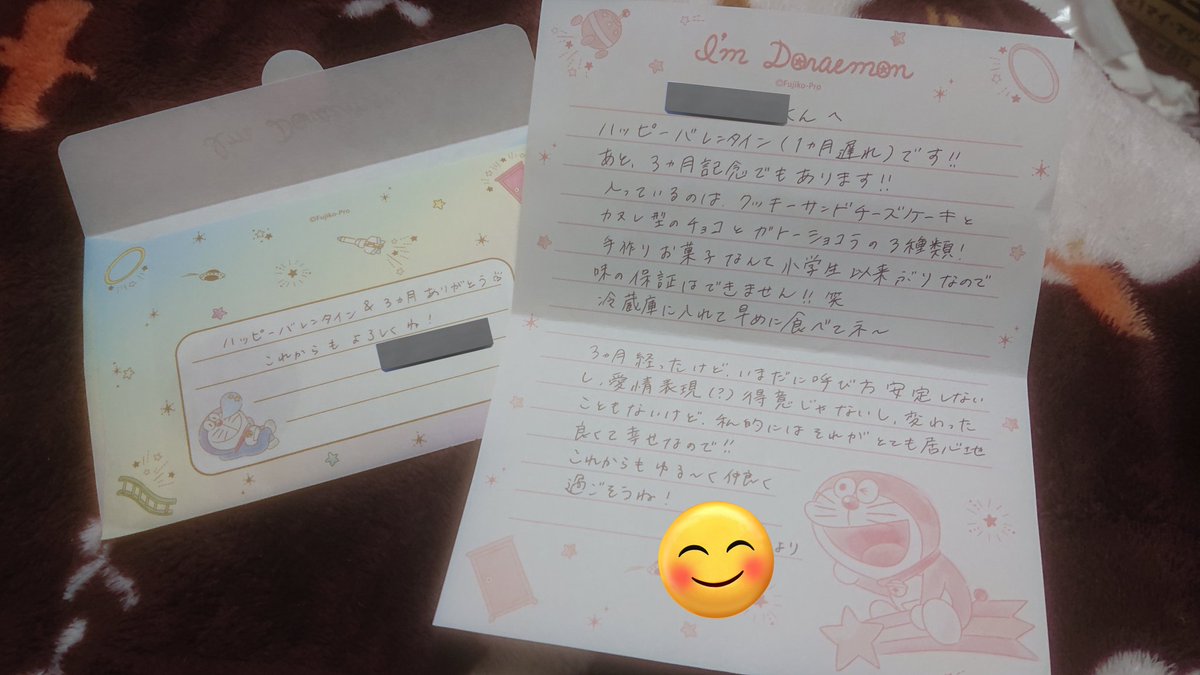 ©Fujiko-Pro
ハッピーバレンタイン & 3ヵ月ありがとう
これからもよろしくね!
I'm Doraemon
©Fujiko-Pro
くんへ
ハッピーバレンタイン(1ヵ月遅れ)です!!
あと、3ヵ月記念でもあります!!
入っているのは、クッキーサンドチーズケーキと
カヌレ型のチョコとガトーショコラの3種類!
手作りお菓子なんて小学生以来ぶりなので
味の保証はできません!!笑
冷蔵庫に入れて早めに食べてネ〜
3ヵ月経ったけど、いまだに呼び方安定しない
し、愛情表現(?)得意じゃないし、変わった
こともないけど、私的にはそれがとても居心地
良くて幸せなので!!
これからもゆる〜く仲良く
過ごそうね!
より